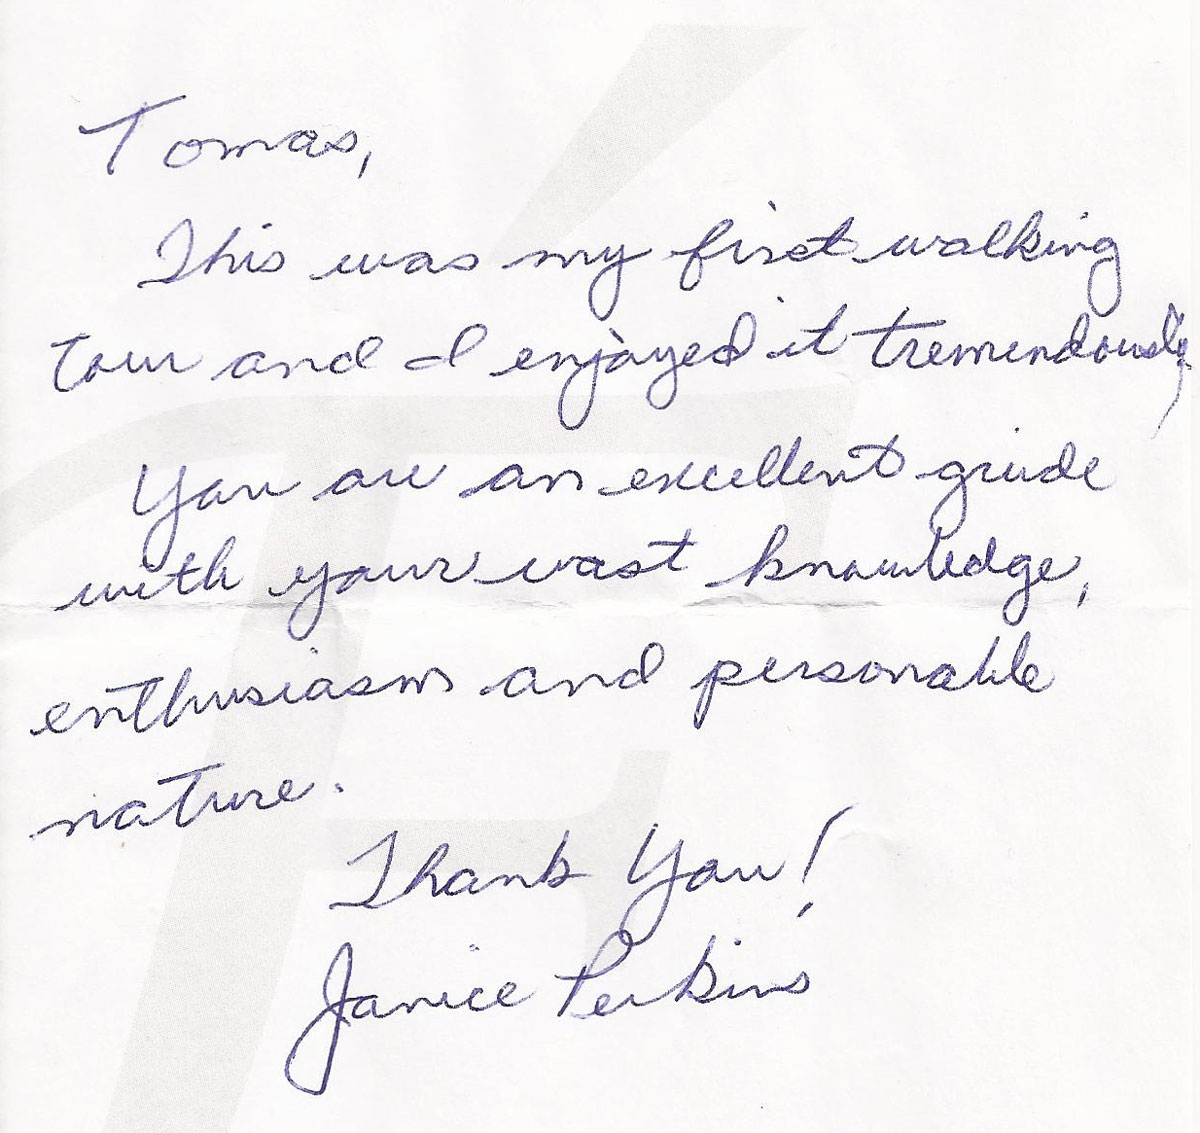 Tomas,
This was my first walking
tour and I enjoyed it tremendously
You are an excellent guide
with your vast knowledge,
enthusiasm and personable
nature.
Thank You!
Janice Perkins